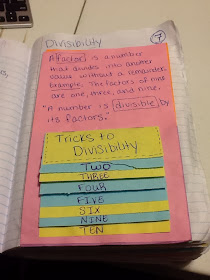 Divisibility
7
A factor is a number
that divides into another
number without a remainder.
Example: The factors of nine
are one, three, and nine.
"A number is divisible by
its factors."
Tricks to
Divisibility
TWO
THREE
FOUR
FIVE
SIX
NINE
TEN